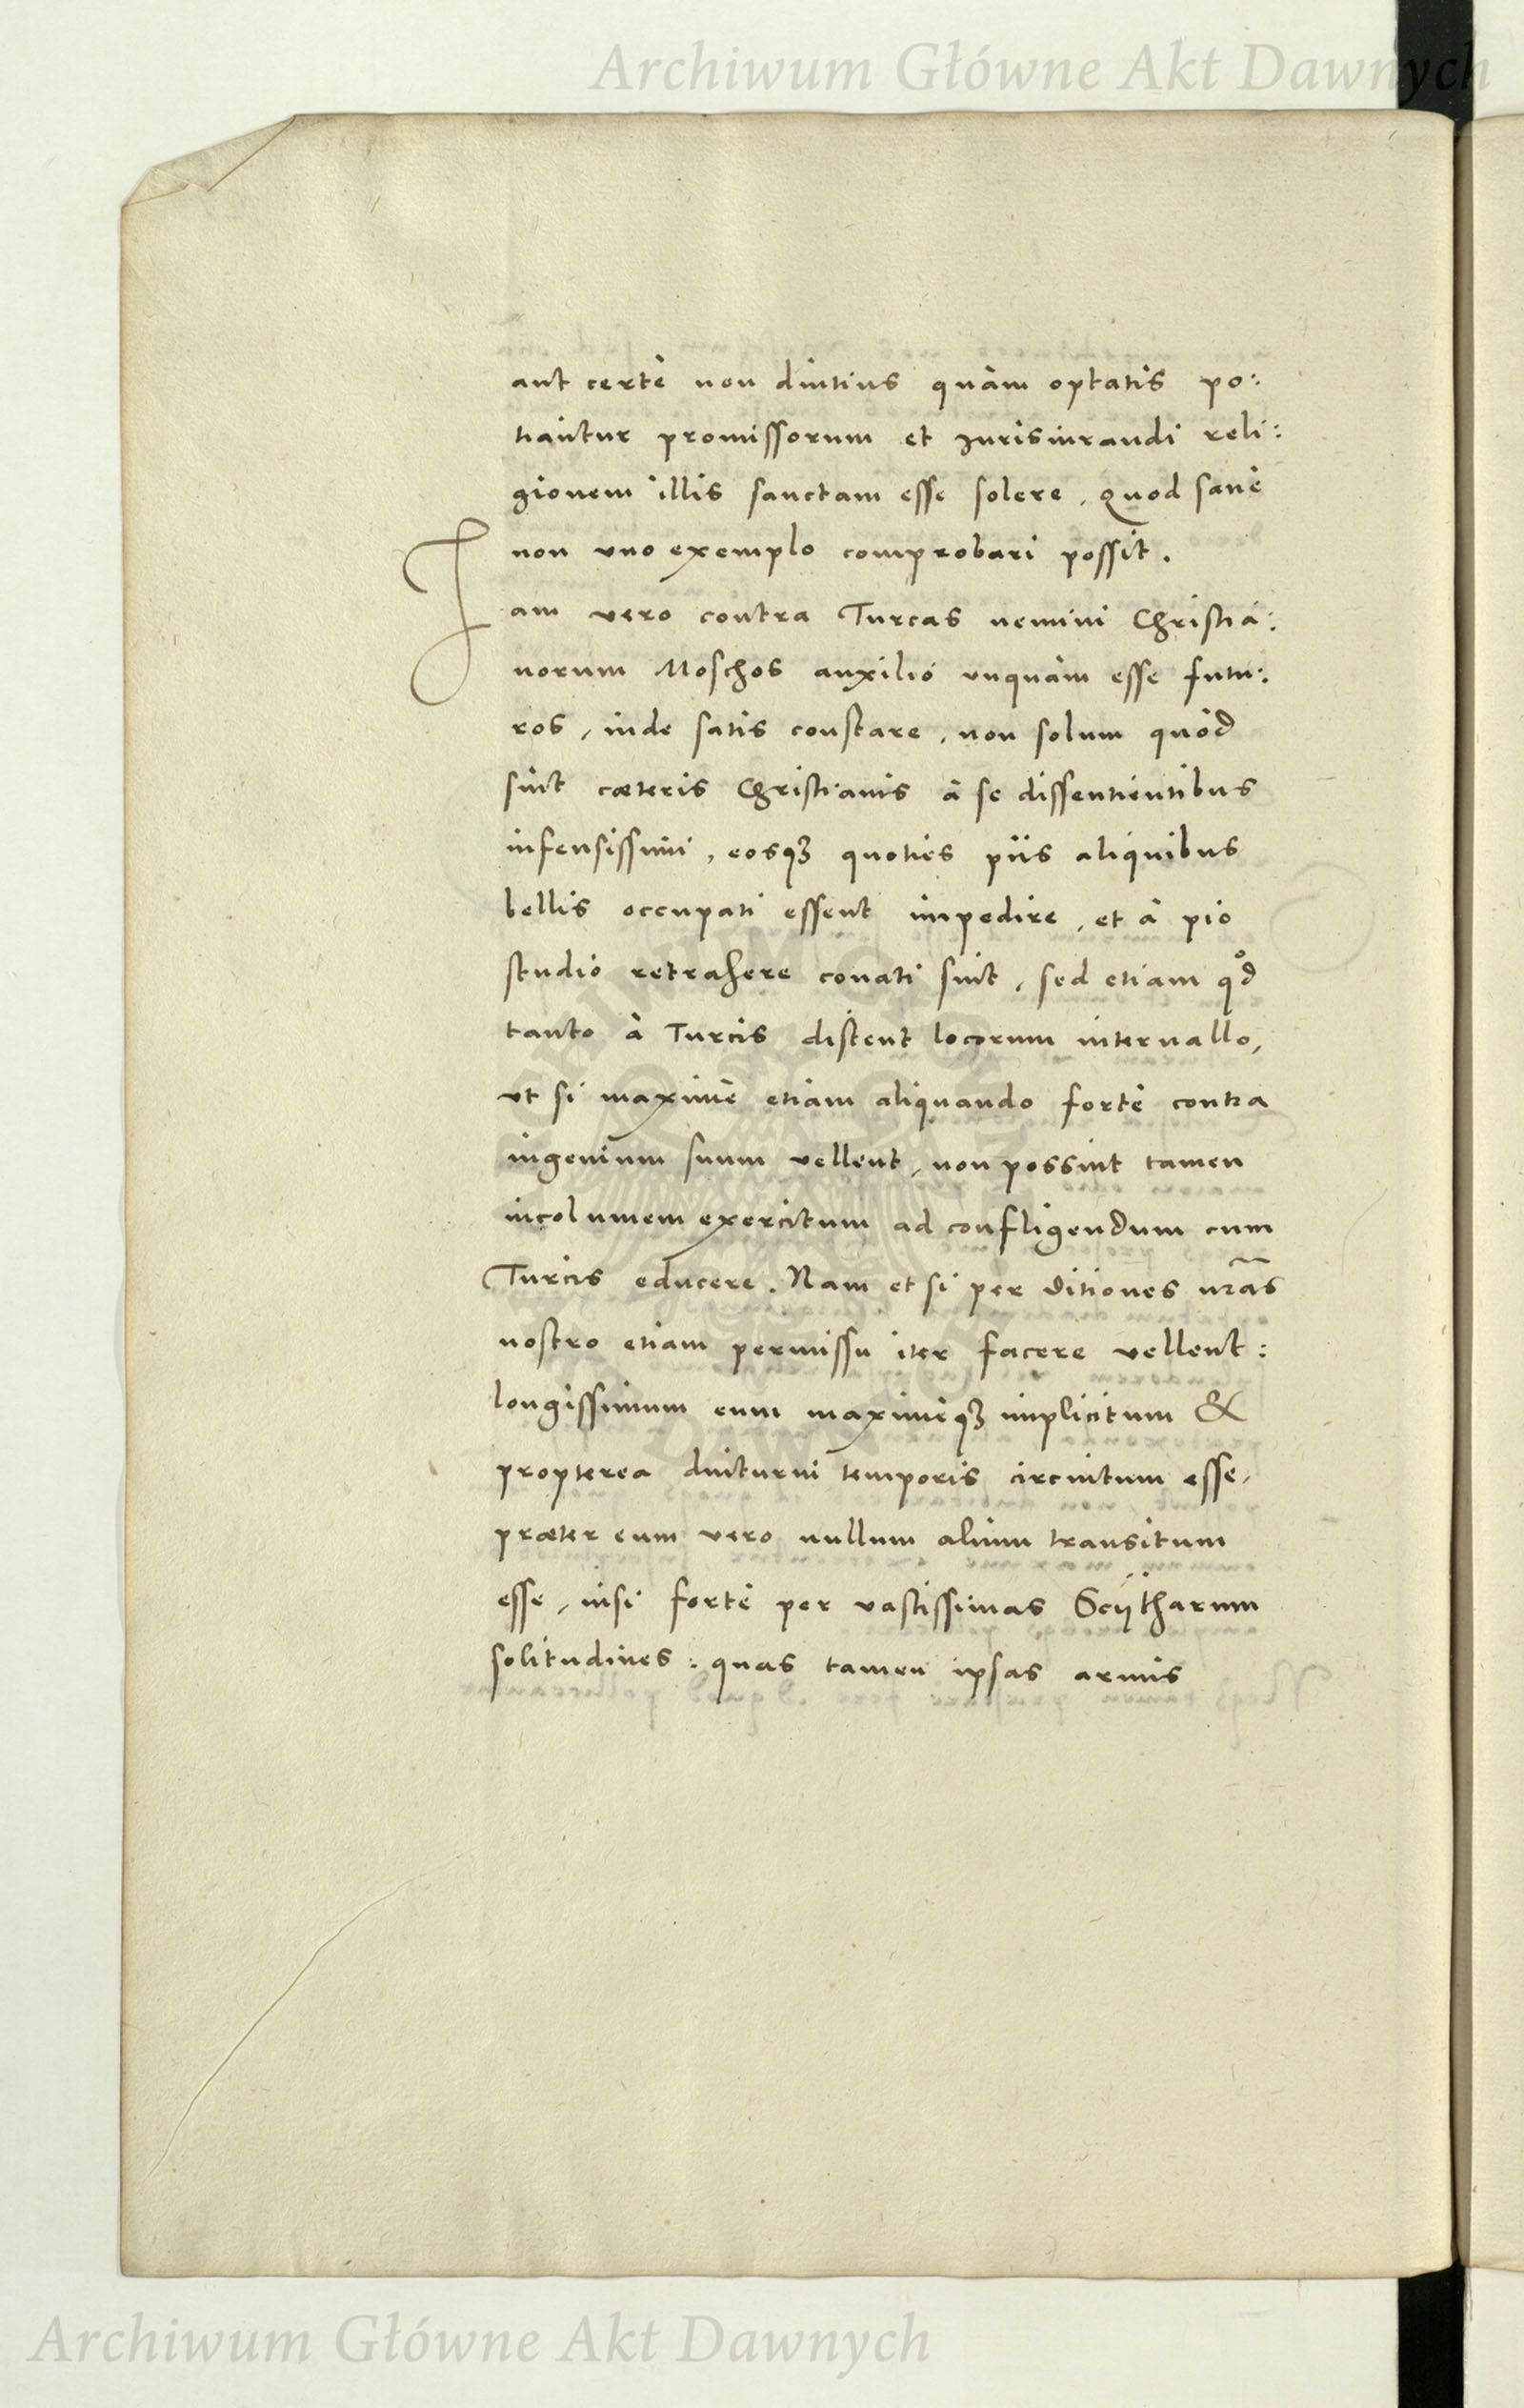 Archiwum Główne Akt Dawnych
aut certè non diutius quàm optatis po:
tiantur promissorum et iurisiurandi reli:
gionem illis sanctam esse solere, Quod sanè
non vno exemplo comprobari possit.
Iam vero contra Turcas nemini Christia:
norum Moschos auxilio vnquàm esse futu:
ros, inde satis constare, non solum quòd
sint cæteris Christianis à se dissentientibus
infensissimi, eosq3 quoties piis aliquibus
bellis occupati essent impedire, et à pio
studio retrahere conati sint, sed etiam qͦd
tanto à Turcis distent locorum interuallo,
vt si maximè etiam aliquando fortè contra
ingenium suum vellent, non possint tamen
incolumem exercitum ad confligendum cum
Turcis educere. Nam et si per ditiones nr̃as
nostro etiam permissu iter facere vellent:
longissimum eum maximèq3 implicitum &
propterea diuturni temporis circuitum esse,
præter eum vero nullum alium transitum
esse, nisi fortè per vastissimas Scÿtharum
solitudines: quas tamen ipsas armis
Archiwum Główne Akt Dawnych